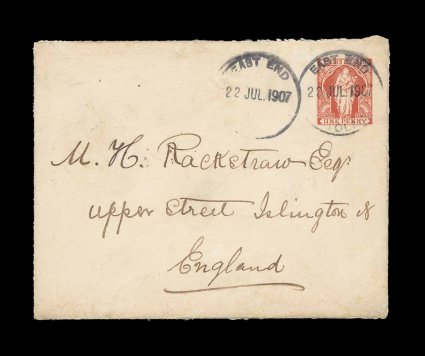 EAST END
22 JUL.1907
EAST END
22 JUL.1907
ONE PENNY
M. H. Racketraw Esq.
upper street Islington N
England